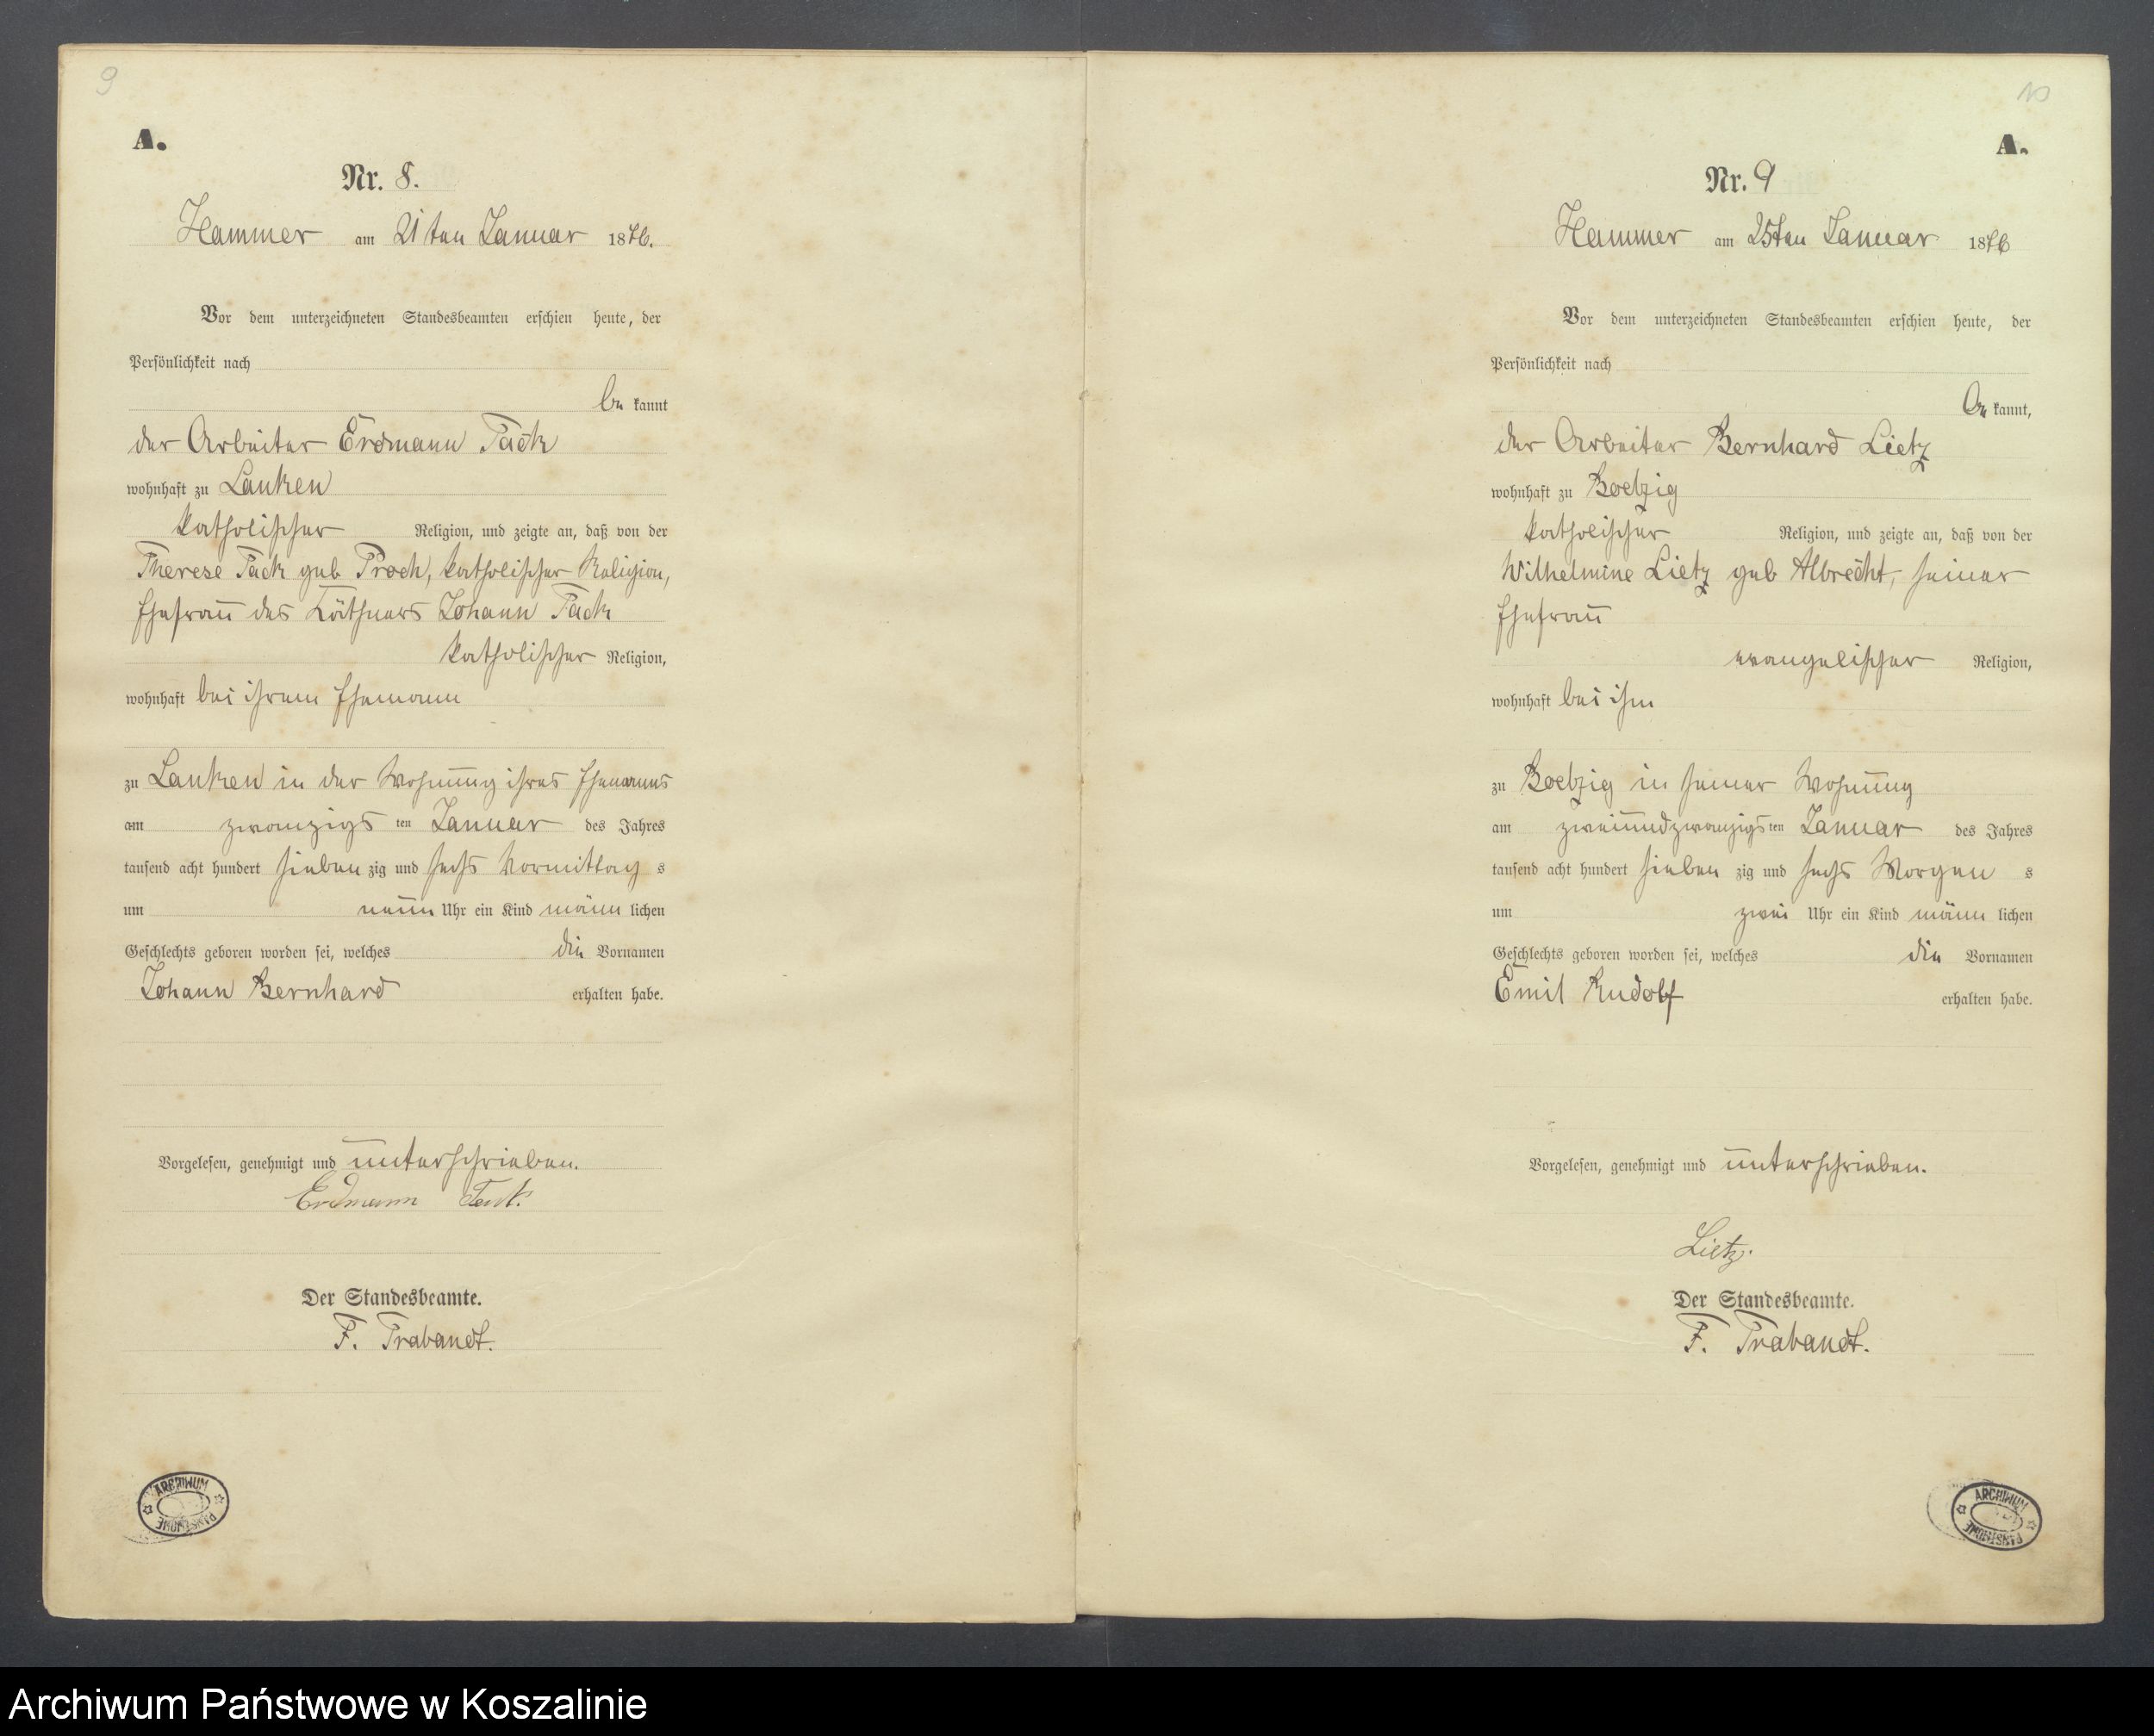 9
A.
Nr. 8.
Hammer am 21ten Januar 1876.
Vor dem unterzeichneten Standesbeamten erschien heute, der
Persönlichkeit nach
be kannt
der Arbeiter Erdmann Tack
wohnhaft zu Lanken
katholischer Religion, und zeigte an, daß von der
Therese Tack geb Proch, katholischer Religion,
Ehefrau des Käthners Johann Tack
katholischer Religion,
wohnhaft bei ihrem Ehemann
zu Lanken in der Wohnung ihres Ehemanns
am zwanzigs ten Januar des Jahres
tausend acht hundert sieben zig und sechs Vormittag s
um neun Uhr ein Kind männ lichen
Geschlechts geboren worden sei, welches die Vornamen
Johann Bernhard erhalten habe.
Vorgelesen, genehmigt und unterschrieben.
Erdmann
Der Standesbeamte.
F. Trabandt.
ARCHIWUM PAŃSTWOWE
10
A.
Nr. 9
Hammer am 25ten Januar 1876
Vor dem unterzeichneten Standesbeamten erschien heute, der
Persönlichkeit nach
be kannt,
der Arbeiter Bernhard Lietz
wohnhaft zu Boelzig
katholischer Religion, und zeigte an, daß von der
Wilhelmine Lietz geb Albrecht, seiner
Ehefrau
evangelischer Religion,
wohnhaft bei ihm
zu Boelzig in seiner Wohnung
am zweiundzwanzigs ten Januar des Jahres
tausend acht hundert sieben zig und sechs Morgen s
um zwei Uhr ein Kind männ lichen
Geschlechts geboren worden sei, welches die Vornamen
Emil Rudolf erhalten habe.
Vorgelesen, genehmigt und unterschrieben.
Lietz.
Der Standesbeamte.
F. Trabandt.
ARCHIWUM PAŃSTWOWE
Archiwum Państwowe w Koszalinie